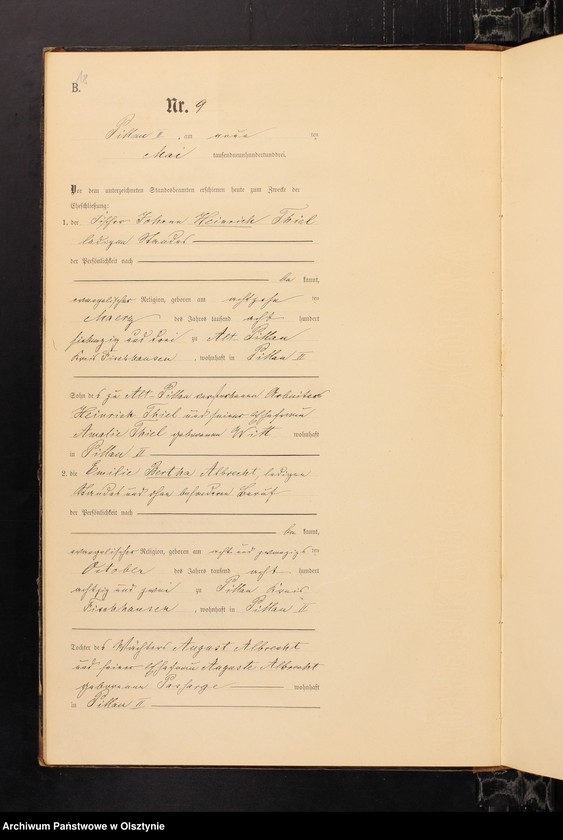 B.
18
Nr. 9
Pillau II, am neun ten
Mai tausendneunhundertunddrei.
Vor dem unterzeichneten Standesbeamten erschienen heute zum Zwecke der
Eheschließung:
1. der Fischer Johann Heinrich Thiel
ledigen Standes
der Persönlichkeit nach
be kannt,
evangelischer Religion, geboren am achtzehn ten
Maerz des Jahres tausend acht hundert
siebenzig und drei zu Alt-Pillau
Kreis Fischhausen, wohnhaft in Pillau II
Sohn des zu Alt-Pillau verstorbenen Arbeiters
Heinrich Thiel und seiner Ehefrau
Amalie Thiel geborenen Witt wohnhaft
in Pillau II
2. die Emilie Bertha Albrecht, ledigen
Standes und ohne besonderen Beruf
der Persönlichkeit nach
be kannt,
evangelischer Religion, geboren am acht und zwanzigs ten
October des Jahres tausend acht hundert
achtzig und zwei zu Pillau Kreis
Fischhausen, wohnhaft in Pillau II
Tochter des Wächters August Albrecht
und seiner Ehefrau Auguste Albrecht
geborenen Passarge wohnhaft
in Pillau II
Archiwum Państwowe w Olsztynie